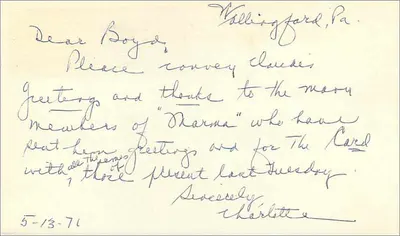 Wallingford, Pa.
Dear Boyd,
Please convey Claude's
greetings and thanks to the many
members of "Marma" who have
sent him greetings and for the Card
with all the names of those present last Tuesday.
Sincerely
Charlotte
5-13-71